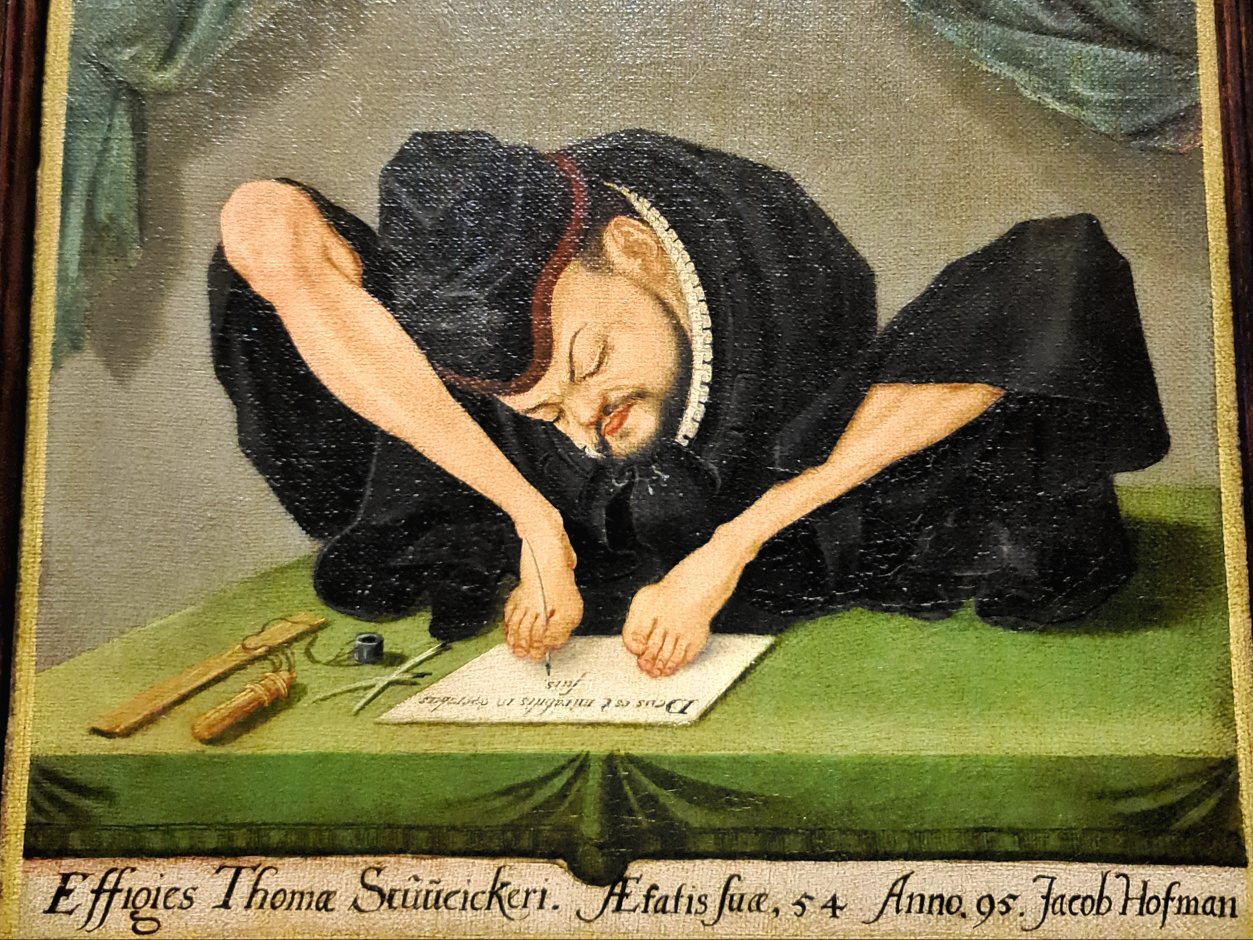 Deus est mirabilis in operibus
suis
Effigies Thomæ Scüüeickeri. Ætatis suæ, 54 Anno. 95. Jacob Hofman